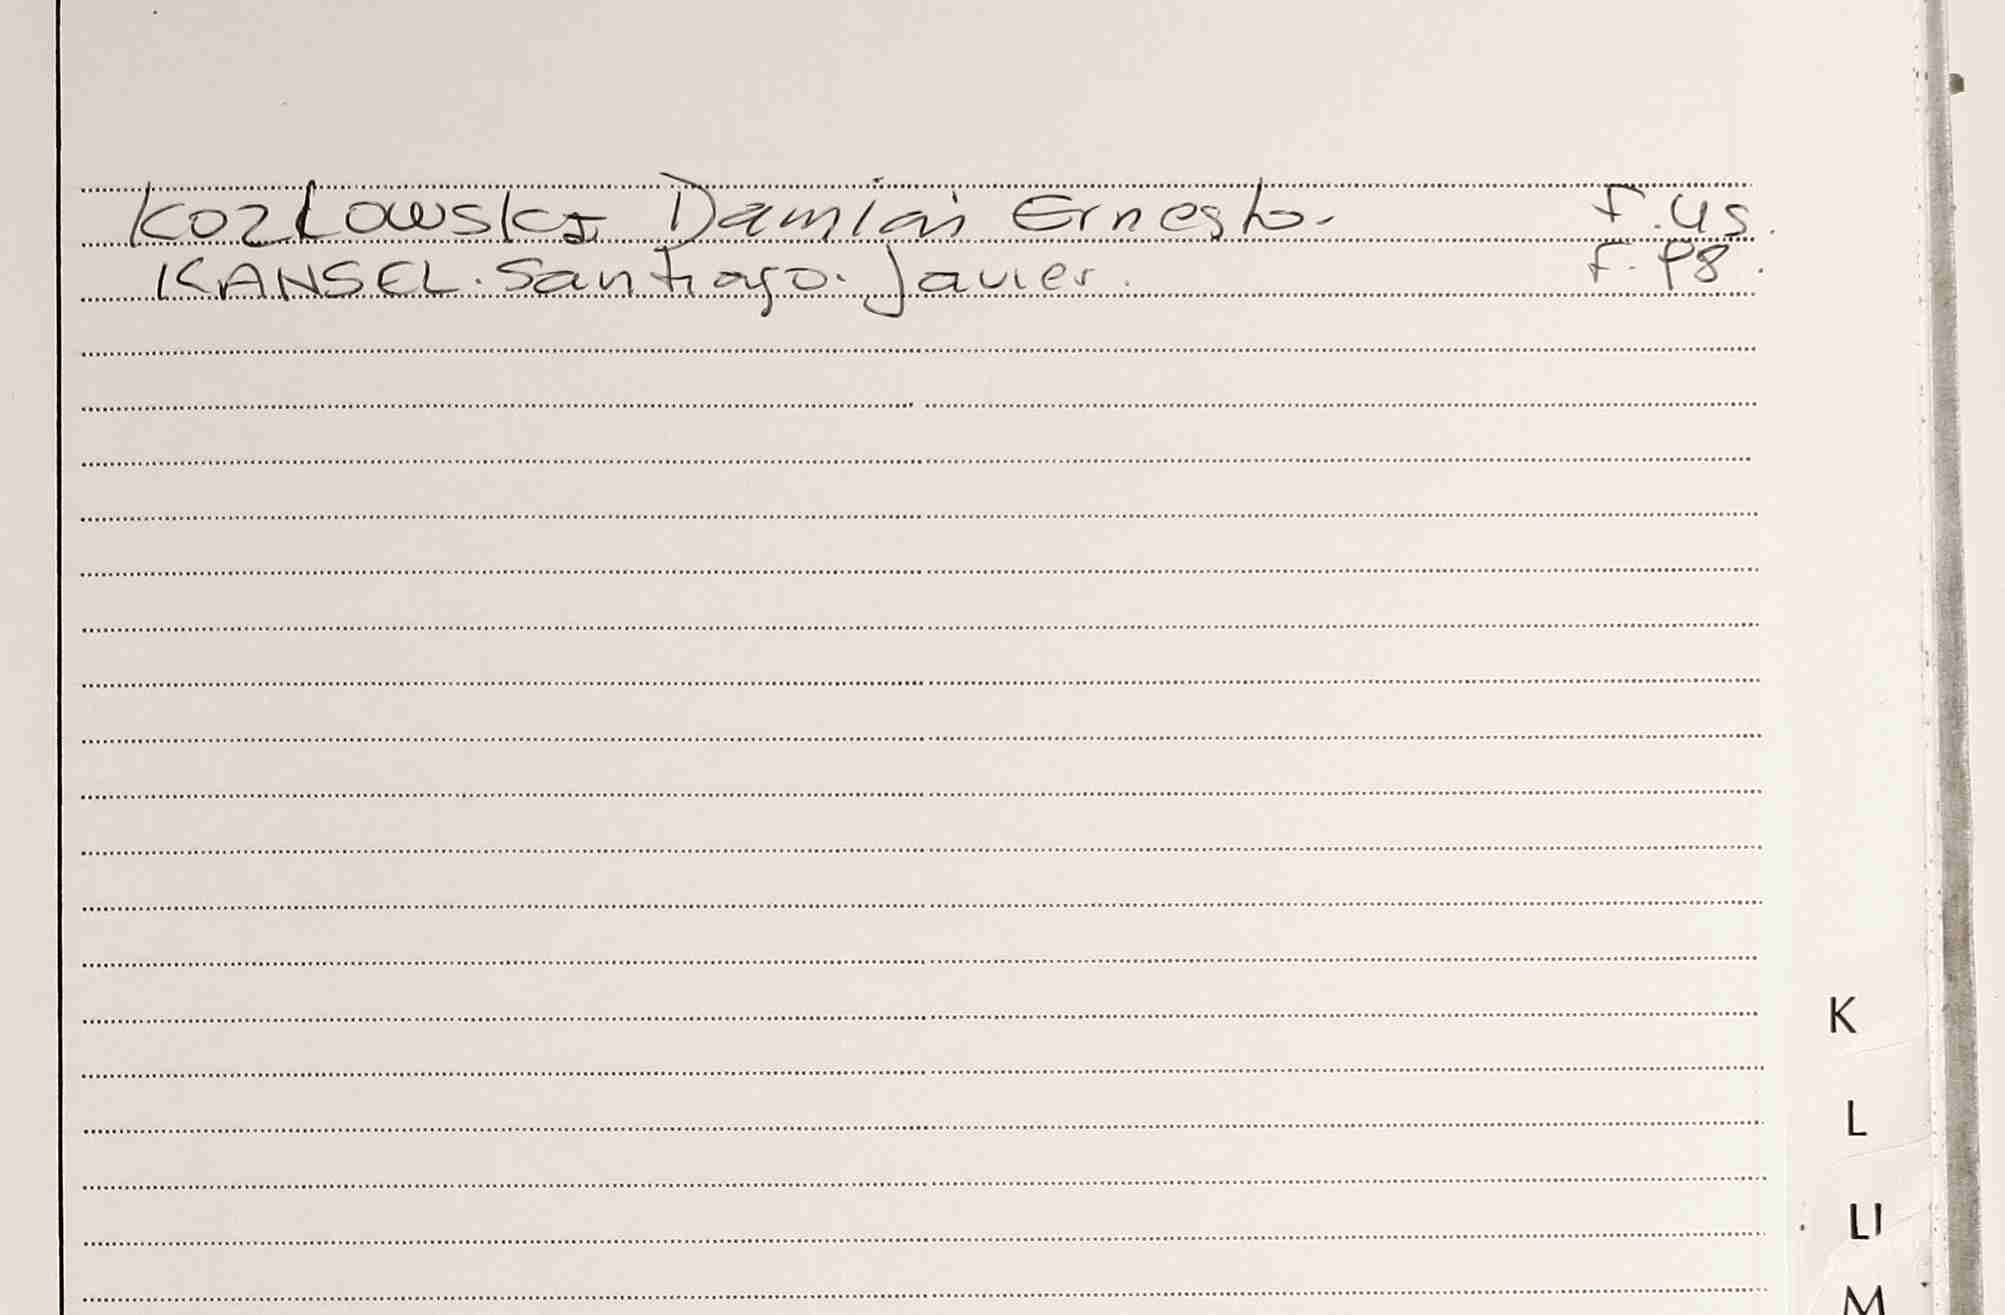 Kozlowski Damian Ernesto. F. 45.
KANSEL. Santiago. Javier. F. 98.
K
L
Ll
M